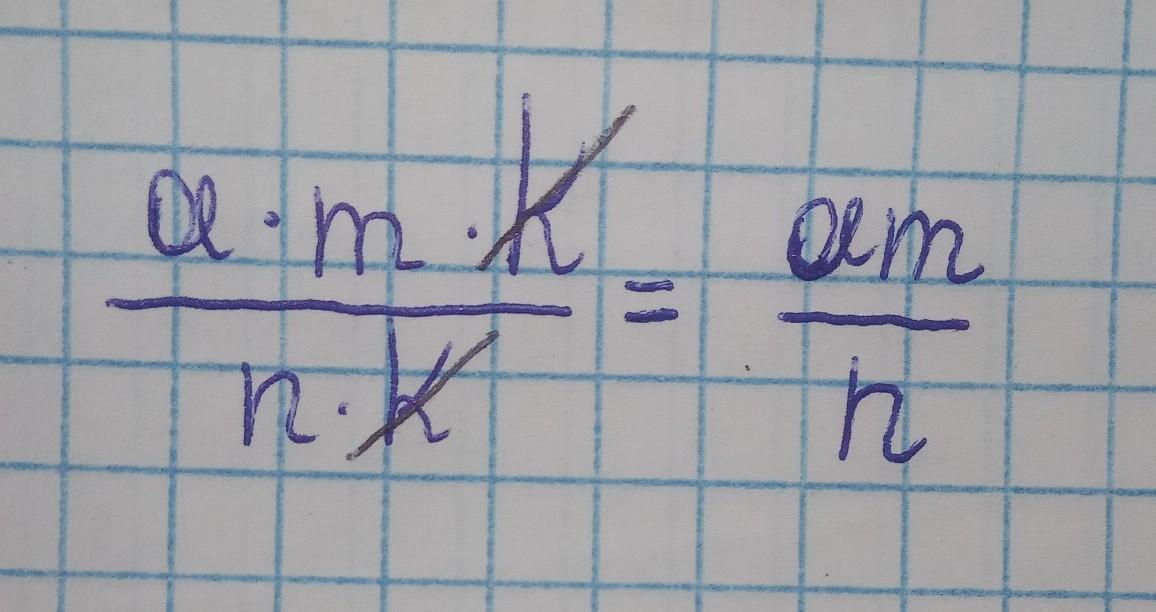 a · m · k / n · k = am / n